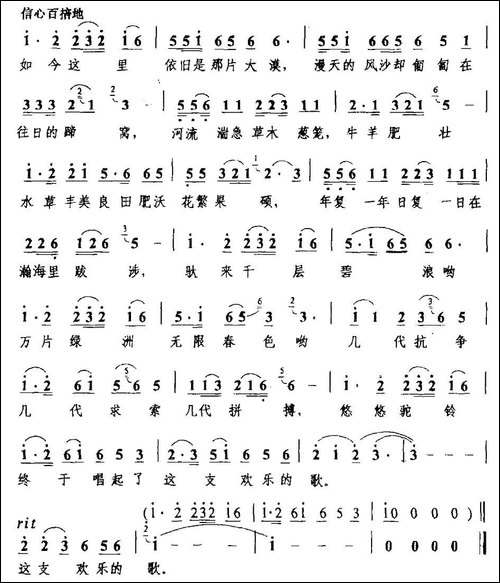 信心百搭地
i· 2 2 3 2 i 6 | 5 5 i 6 5 6 6· | 5 5 1 6 5 6 5 1 |
如 今 这 里 依旧是 那片 大 漠， 漫天的 风沙却 匍 匐 在
3 3 3 2 1 3 - | 5 5 6 1 1 2 2 3 1 1 | 2· 1 3 2 1 5 - |
往日的 蹄 窝， 河流 湍急 草木 葱笼， 牛 羊 肥 壮
i· 2 2 i 5· 6 6 5 | 3 5 3 2 1 2· 3 | 1 1 1 2 2 3 1 1 1 |
水 草 丰美 良 田 肥沃 花繁 果 硕， 年复 一年 日复 一日在
2 2 6 1 2 6 5 - | i· 2 2 3 2 i 6 | 5· i 6 5 5 |
瀚海里 跋 涉， 驮 来 千 层 碧 浪哟
i· 2 2 3 2 i 6 | 5· i 6 5 3· 3 | i 1 2 3 6 5 |
万 片 绿 洲 无 限 春 色 哟 几 代 抗 争
i· 2 6 i 5 5 | 1 1 3 2 1 6 6 - | i· 2 2 3 2 i 6 |
几 代 求 索 几代 拼 搏， 悠 悠 驼 铃
5· 3 5 i 2 3 - | 2· 3 5 i 6 5 6 | 2 i 2 3· i 3 - - - |
终 于 唱起 了 这 支 欢乐 的 歌。
(i· 2 2 3 2 i 6 | i· 2 6 i 6 5 3 | i 0 0 0 0)
rit 2 2 3 6 5 6 | i - - - | i - - - | 0 0 0 0 ‖
这支 欢乐的 歌。